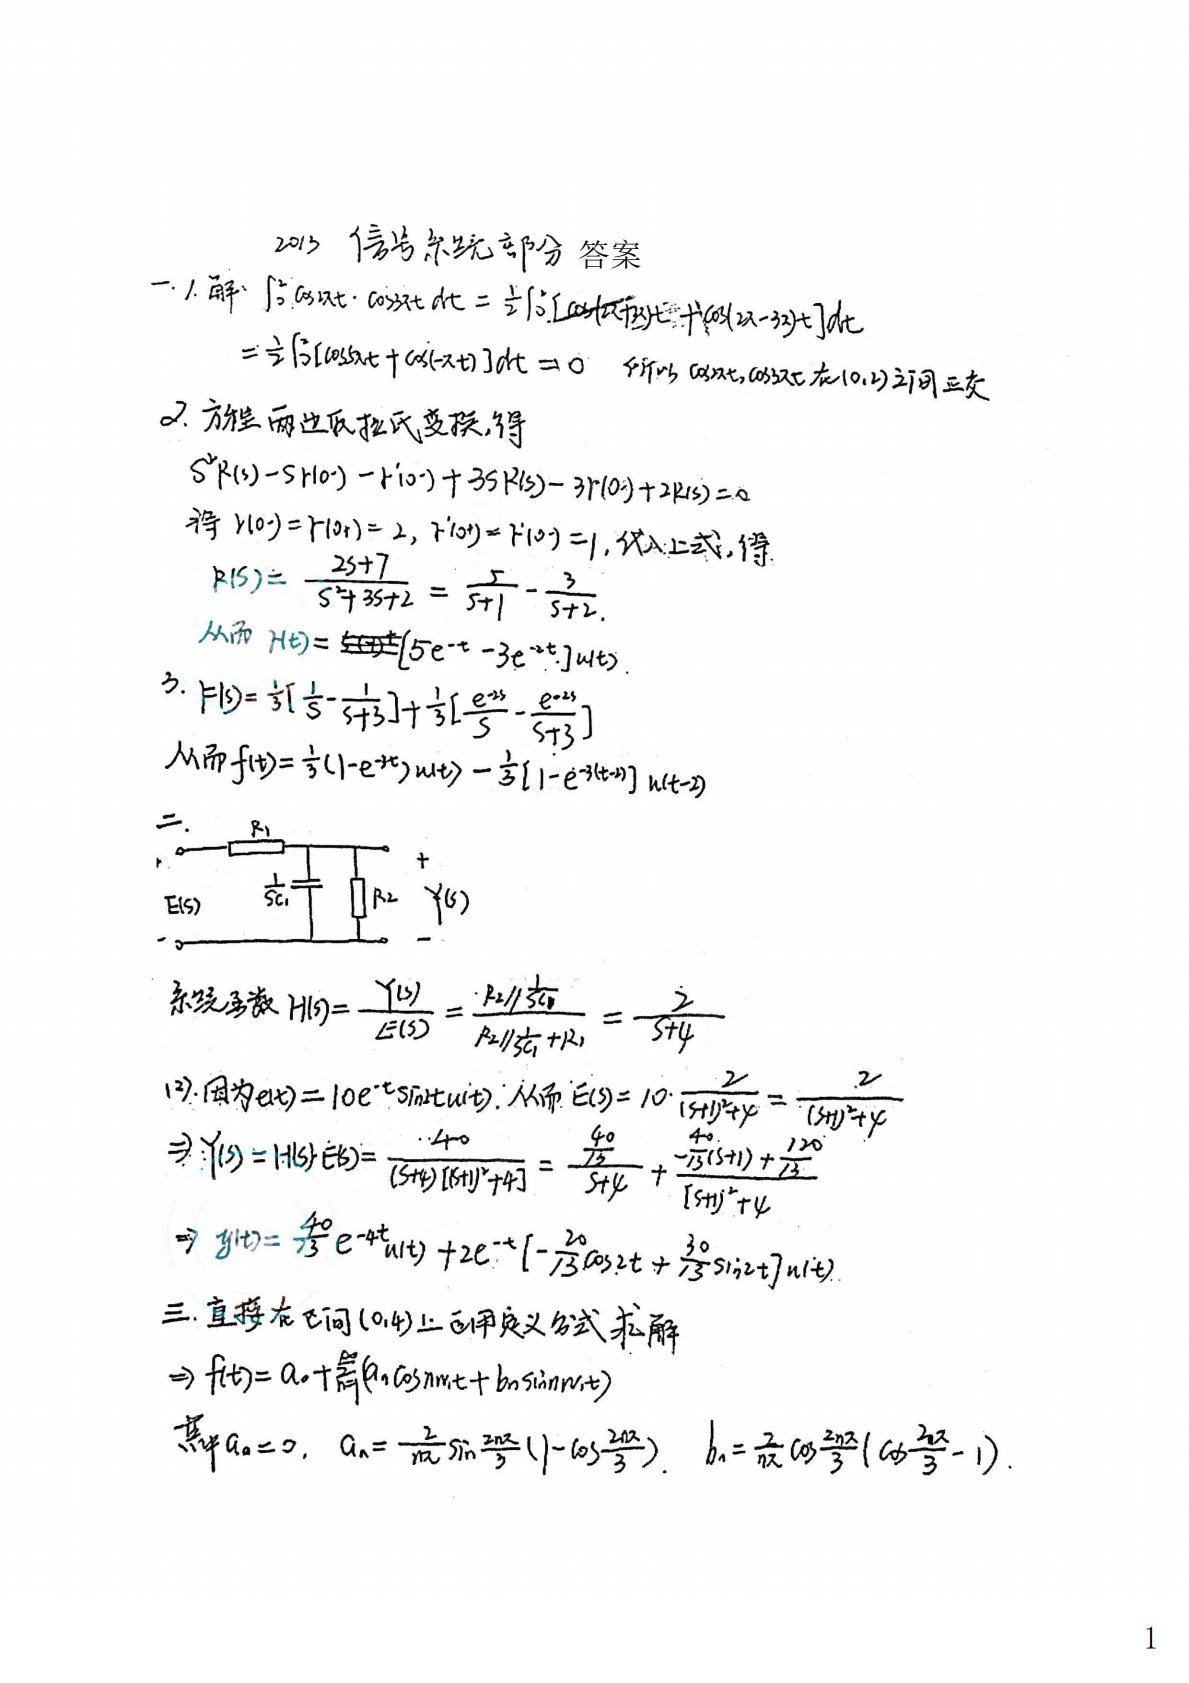 2013 信号系统部分 答案
一. 1. 解: ∫₀² cos2πt · cos3πt dt = ½∫₀²[cos(2π+3π)t + cos(2π-3π)t]dt
= ½∫₀²[cos5πt + cos(-πt)]dt = 0 所以 cos2πt, cos3πt 在(0,2)之间正交
2. 方程两边取拉氏变换,得
S²R(s) - Sr(0-) - r'(0-) + 3SR(s) - 3r(0-) + 2R(s) = 0
将 r(0-) = r(0+) = 2, r'(0+) = r'(0-) = 1, 代入上式, 得
R(S) = (2S+7)/(S²+3S+2) = 5/(S+1) - 3/(S+2).
从而 r(t) = [5e^{-t} - 3e^{-2t}]u(t).
3. F(s) = ⅓[1/S - 1/(S+3)] + ⅓[e^{-2s}/S - e^{-2s}/(S+3)]
从而 f(t) = ⅓(1-e^{-3t})u(t) - ⅓[1-e^{-3(t-2)}]u(t-2)
二.
R1
+ +
E(S) 1/SC1 R2 Y(S)
- -
系统函数 H(s) = Y(s)/E(s) = (R2//1/SC1)/(R2//1/SC1 + R1) = 2/(S+4)
(2). 因为e(t) = 10e^{-t}sin2tu(t). 从而 E(S) = 10·2/((S+1)²+4) = 2/((S+1)²+4)
⇒ Y(s) = H(s)·E(s) = 40/((S+4)[(S+1)²+4]) = (40/13)/(S+4) + (-40/13(S+1) + 120/13)/([S+1]²+4)
⇒ y(t) = 40/13 e^{-4t}u(t) + 2e^{-t}[-20/13 cos2t + 30/13 sin2t]u(t)
三. 直接在区间(0,4)上运用定义公式求解
⇒ f(t) = a₀ + Σ(aₙcosnw₁t + bₙsinnw₁t)
其中a₀ = 0, aₙ = 2/nπ sin 2nπ/3 (1 - cos 2nπ/3). bₙ = 2/nπ cos 2nπ/3 (cos 2nπ/3 - 1).
1